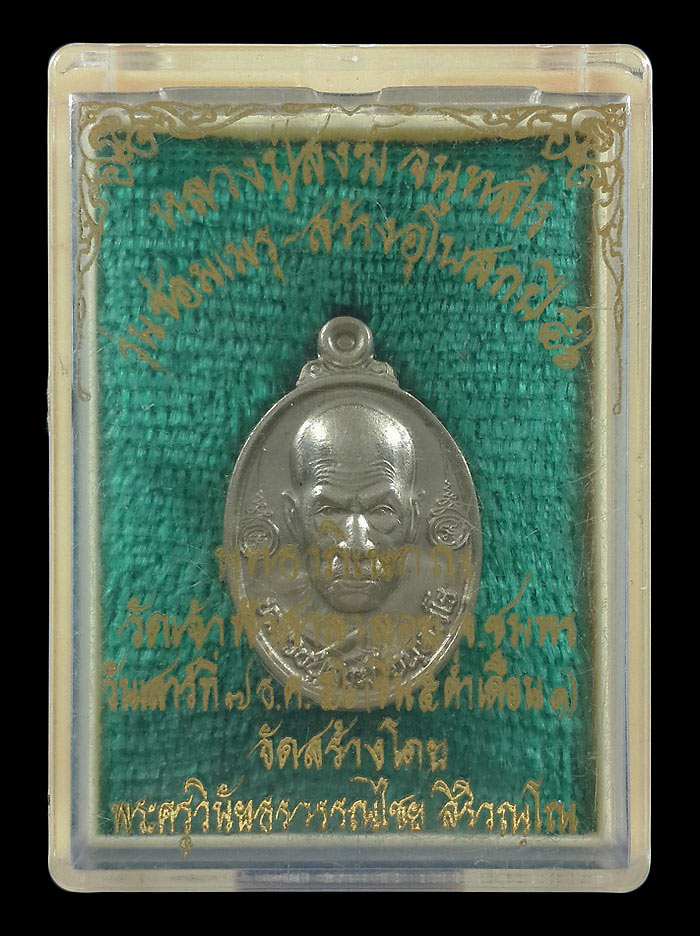 หลวงปู่สงฆ์ จนฺทสโร
รุ่น ซ่อมเมรุ-สร้างอุโบสถปี ๕๖
พุทธาภิเษก ณ
วัดเจ้าฟ้าศาลาลอย จ.ชุมพร
วันเสาร์ที่ ๗ ธ.ค. ๕ ค่ำเดือน ๑)
จัดสร้างโดย
พระครูวินัยธร วรรณไชย สิริวณฺโณ